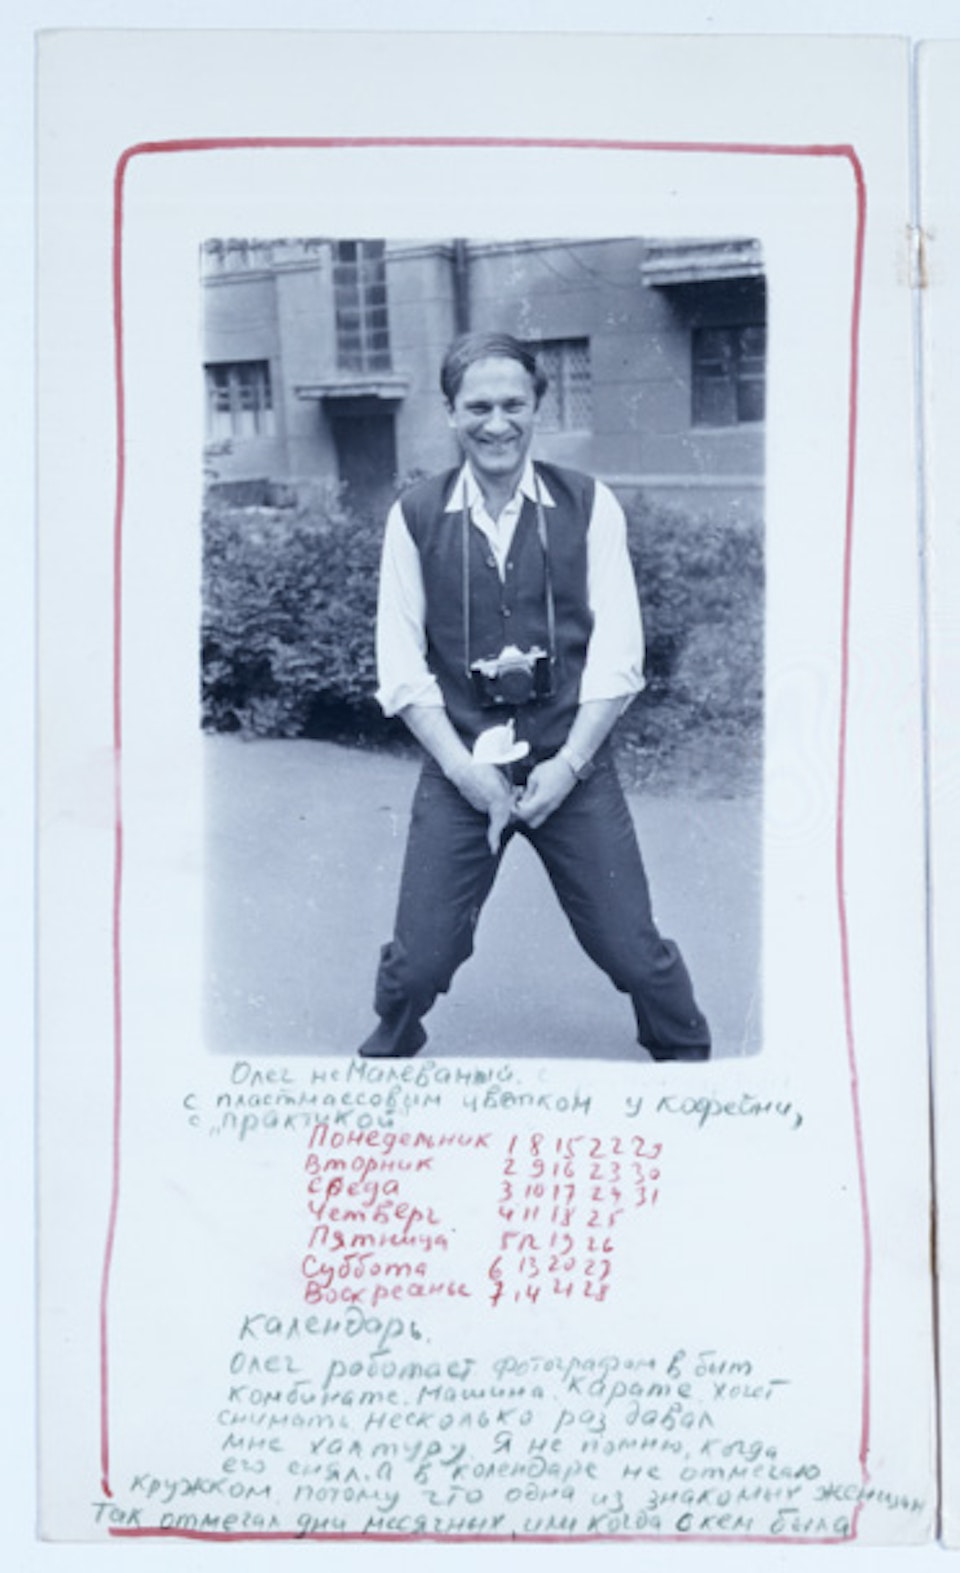 Олег неМалеваный.
с пластмассовым цветком у кофейни,
с „практикой"
Понедельник 1 8 15 22 29
Вторник 2 9 16 23 30
Среда 3 10 17 24 31
Четверг 4 11 18 25
Пятница 5 12 19 26
Суббота 6 13 20 27
Воскресанье 7 14 21 28
Календарь.
Олег работает фотографом в быт
комбинате. Машина. Каратэ. Хочет
снимать несколько раз давал
мне халтуру. Я не помню, когда
его снял. А в календаре не отмечаю
кружком, потому что одна из знакомых женщин
так отмечал дни месячных, или когда с кем была